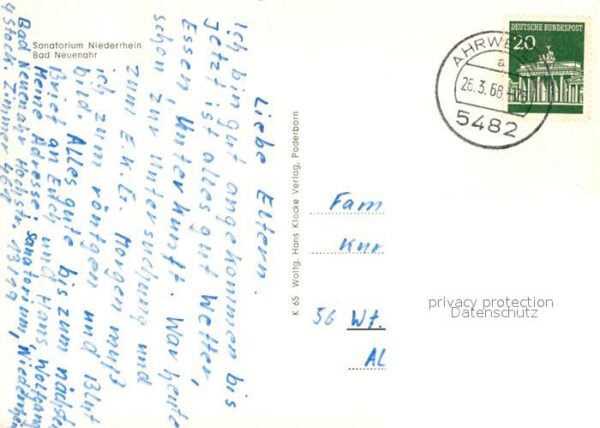 Sanatorium Niederrhein
Bad Neuenahr
Liebe Eltern.
Ich bin gut angekommen bis
jetzt ist alles gut Wetter,
Essen, Unterkunft. War heute
schon zur Untersuchung und
zum E.K.G. Morgen muß
ich zum röntgen und Blut
bild. Alles gute bis zum nächsten
Brief an Euch und Hans, Wolfgang
Meine Adresse: Sanatorium, Niederrhein
Bad Neuenahr Hochstr. 13/19
4 Stock. Zimmer
K 65 Wolfg. Hans Klocke Verlag, Paderborn
DEUTSCHE BUNDESPOST
20
AHRWE
a
26.3.68
5482
Fam
Knr
56 Wt.
Al
privacy protection
Datenschutz